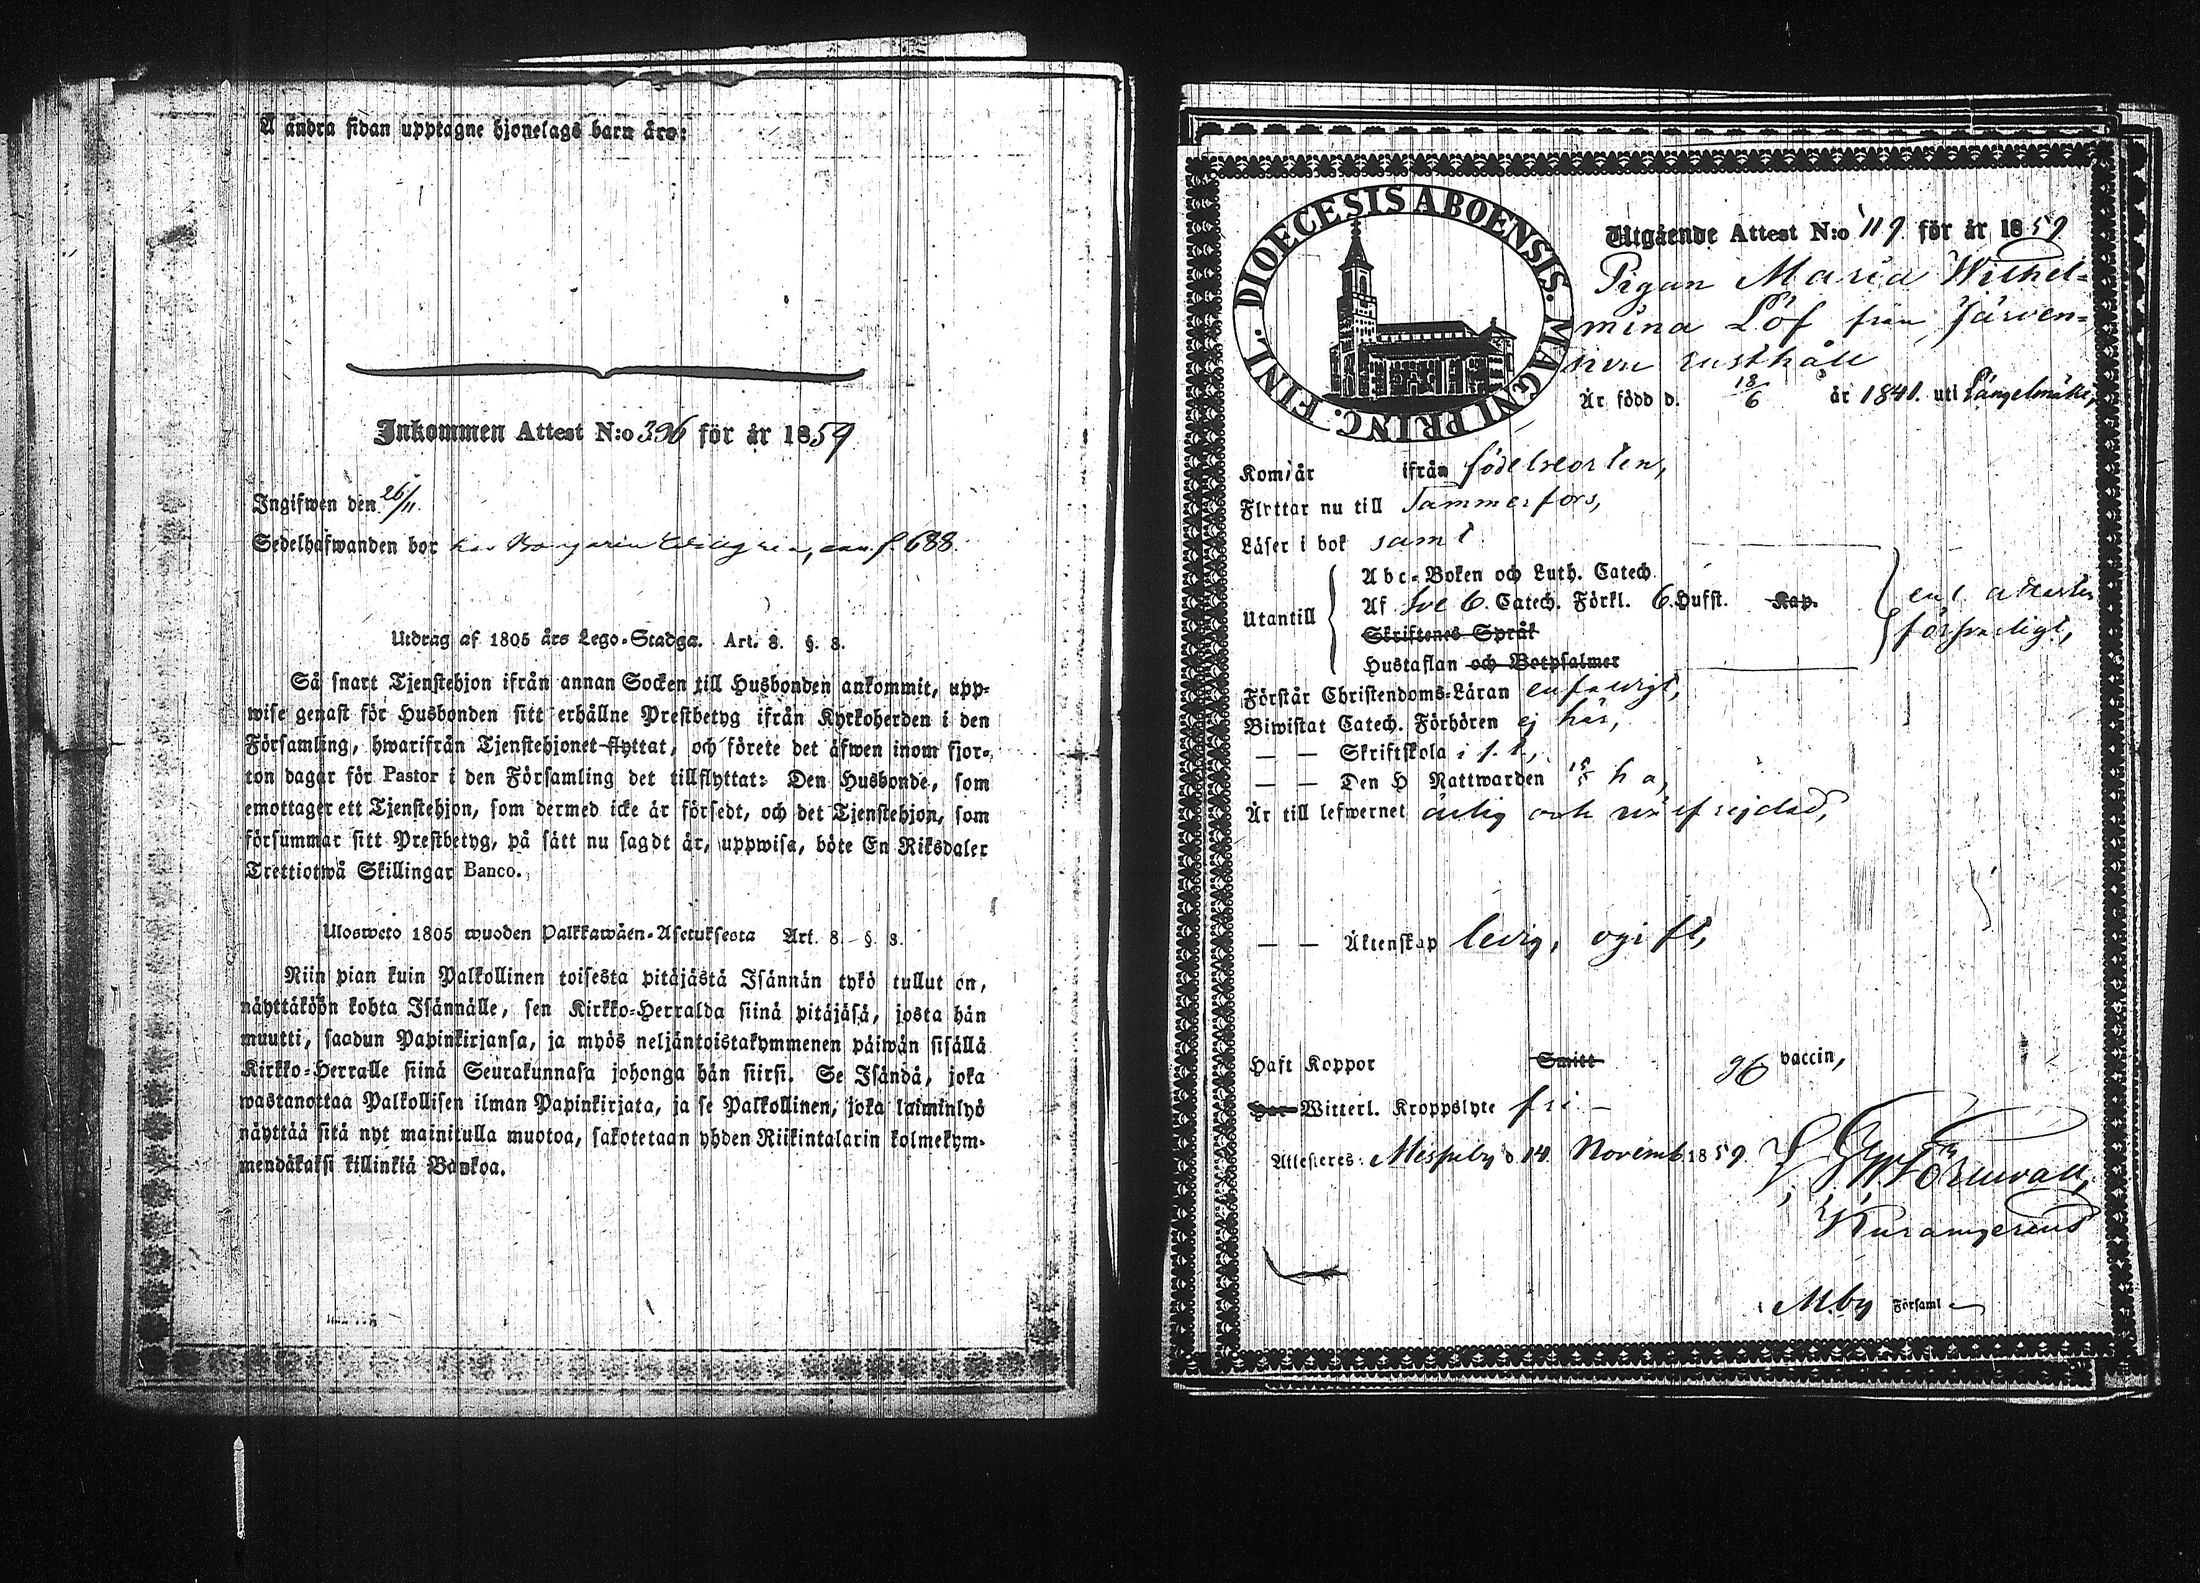 A andra sidan upptagne hjonelags barn äro:
Inkommen Attest N:o 396 för år 1859
Ingifwen den 26/11
Sedelhafwanden bor hos f. 688.
Utdrag af 1805 års Lego-Stadga. Art. 8. §. 8.
Så snart Tjenstehjon ifrån annan Socken till Husbonden ankommit, upp-
wise genast för Husbonden sitt erhållne Prestbetyg ifrån Kyrkoherden i den
Församling, hwarifrån Tjenstehjonet flyttat, och förete det äfwen inom fjor-
ton dagar för Pastor i den Församling det tillflyttat: Den Husbonde, som
emottager ett Tjenstehjon, som dermed icke är försedt, och det Tjenstehjon, som
försummar sitt Prestbetyg, på sätt nu sagdt är, uppwisa, böte En Riksdaler
Trettiotwå Skillingar Banco.
Ulosweto 1805 wuoden Palkkawäen-Asetuksesta Art. 8. §. 8.
Niin pian kuin Palkollinen toisesta pitäjästä Isännän tykö tullut on,
näyttäköön kohta Isännälle, sen Kirkko-Herralda siinä pitäjäsä, josta hän
muutti, saadun Papinkirjansa, ja myös neljäntoistakymmenen päiwän sisällä
Kirkko-Herralle siinä Seurakunnasa johonga hän siirsi. Se Isändä, joka
wastanottaa Palkollisen ilman Papinkirjata, ja se Palkollinen, joka laiminlyö
näyttää sitä nyt mainitulla muotoa, sakotetaan yhden Riikintalarin kolmekym-
mendäkaksi killinkiä Bankoa.
DIOECESIS ABOENSIS. MAGNI PRINC. FINL.
Utgående Attest N:o 119 för år 1859
Pigan Maria Wilhel-
mina Löf från Järven-
rusthåll
Är född d. 18/6 år 1841. uti Längelmäki,
Kom/år ifrån födelseorten,
Flyttar nu till Tammerfors,
Läser i bok samt
Utantill
Abc-Boken och Luth. Catech.
Af Sve 6. Catech. Förkl. 6. Hufst. Kap.
Skriftenes Språk
Hustaflan och Botpsalmer
försvarligt,
Förstår Christendoms-Läran enfaldigt,
Biwistat Catech. Förhören ej här,
— — Skriftskola i
— — Den H Nattwarden h a,
Är till lefwernet ärlig och wälfrejdad,
— — Äktenskap ledig, ogift,
Haft Koppor Smitt vaccin,
Har Witterl. Kroppslyte fri —
Attesteres: Messuby d 14 Novemb 1859.
M.by Församl